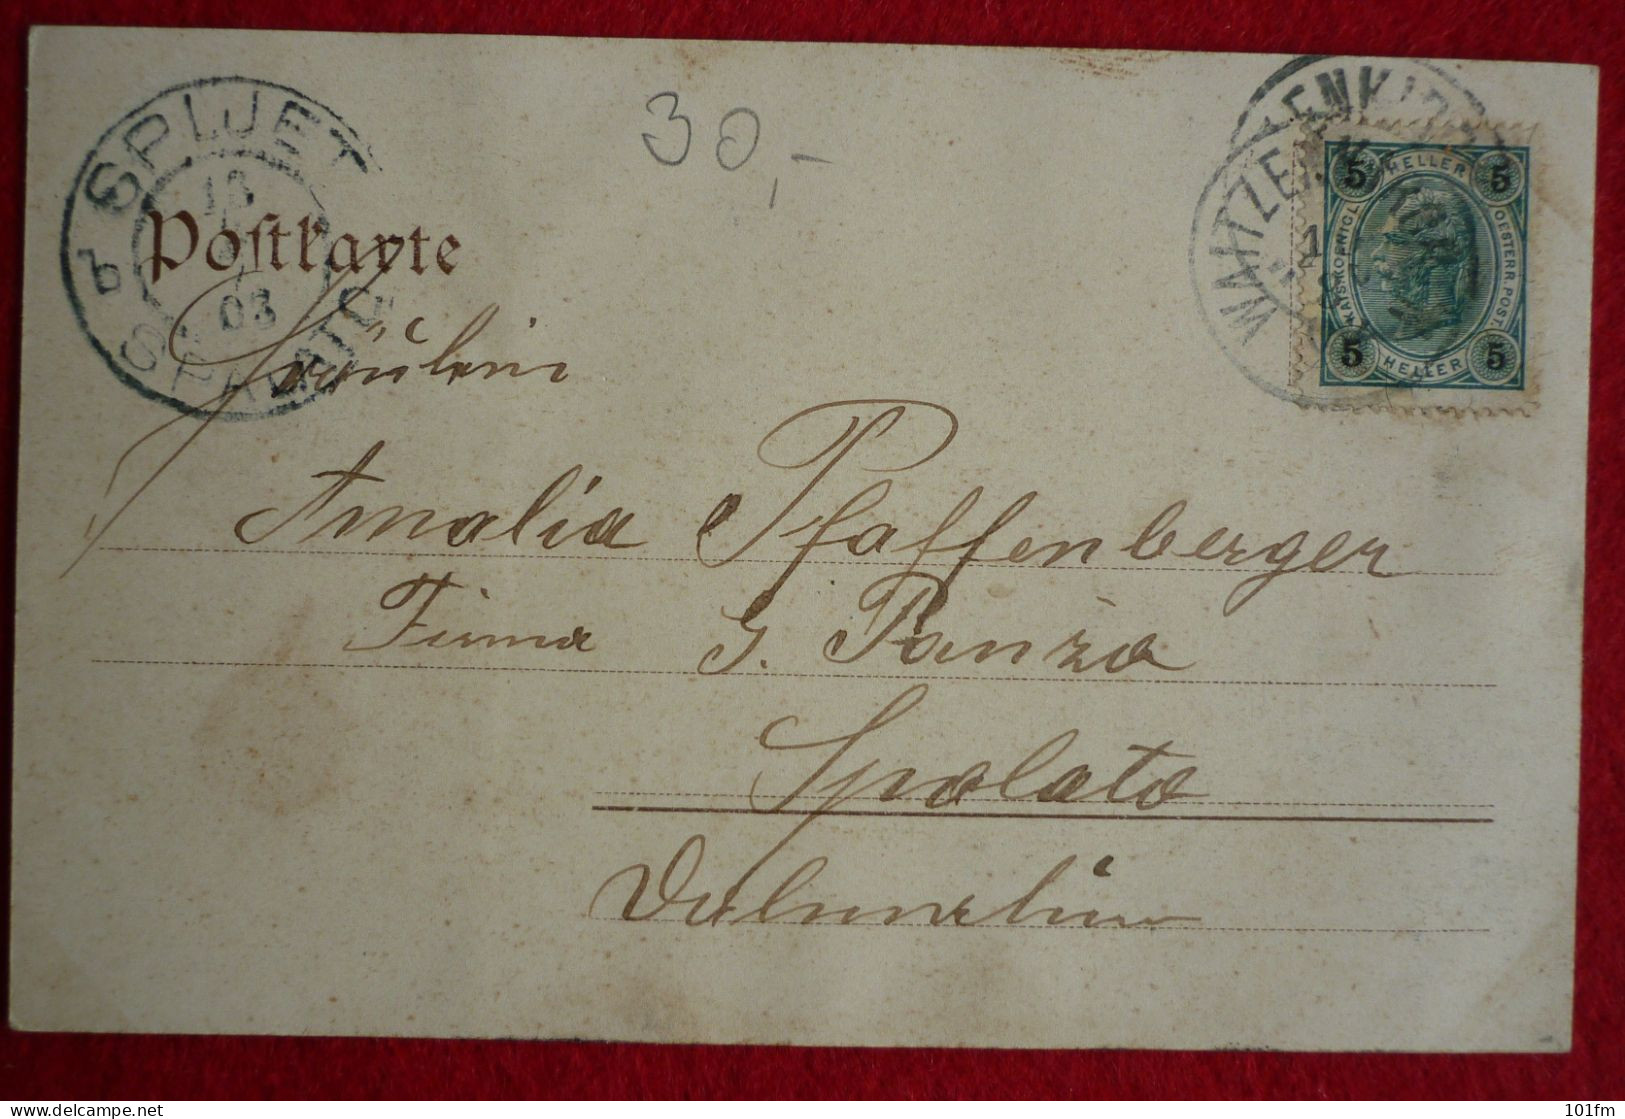 SPLJET
13
03
b
SPALATO
Postkarte
30,-
WAITZENKIR
5 HELLER 5
KAIS. KOENIGL. OESTERR. POST
5 HELLER 5
Fräulein
Amalia Pfaffenberger
Firma G. Panžo
Spolato
Dalmatien
www.delcampe.net
101fm